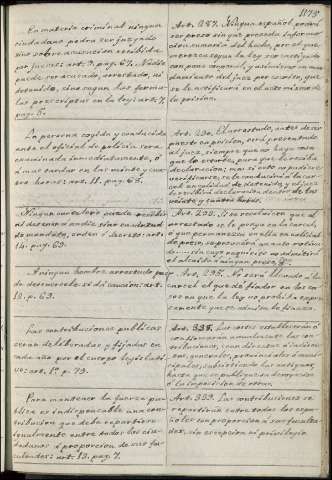 1175
En materia criminal ningun
ciudadano podrá ser juzgado
sino sobre acusacion recibida
por jueces: art. 9. pag. 67. Nadie
puede ser acusado, arrestado, ni
detenido, sino segun las formu-
las prescriptas en la ley: art. 7.
pag. 5.
La persona cogida y conducida
ante el oficial de policía será
examinada inmediatamente, ó
á mas tardar en las veinte y cua-
tro horas: art. 11. pag. 68.
Ningun carcelero puede recibir
ni detener á nadie sino en virtud
de mandato, orden ó decreto: art.
14. pag. 69.
Ningun hombre arrestado puede
de detenersele si dá caucion: art.
12. p. 69.
Las contribuciones publicas
seran deliberadas y fijadas en
cada año por el cuerpo legislati-
vo: art. 1º p. 79.
Para mantener la fuerza pu-
blica es indispensable una con-
tribucion que debe repartirse
igualmente entre todos los ciu-
dadanos á proporcion de sus fa-
cultades: art. 13. pag. 7.
Art. 287. Ningun español podrá
ser preso sin que preceda informa-
cion sumaria del hecho, por el que
merezca segun la ley ser castigado
con pena corporal, y asimismo un man-
damiento del juez por escrito, que
se le notificará en el acto mismo de
la prision.
Art. 290. El arrestado, antes de ser
puesto en prision, será presentado
al juez, siempre que no haya cosa
que lo estorbe, para que le reciba
declaracion; mas si esto no pudiere
verificarse, se le conducirá á la car-
cel en calidad de detenido, y el juez
le recibirá la declaracion dentro de las
veinte y cuatro horas.
Art. 293. Si se resolviere que al
arrestado se le ponga en la carcel,
ó que permanezca en ella en calidad
de preso, se proveerá auto motiva-
do sin cuyo requisito no admitirá
el alcaide á ningun preso
Art. 295. No será llevado á la
carcel el que dé fiador en los ca-
sos en que la ley no prohiba expre-
samente que se admita la fianza.
Art. 338. Las cortes estableceran ó
confirmaran anualmente las con-
tribuciones, sean directas ó indirec-
tas, generales, provinciales ó muni-
cipales, subsistiendo las antiguas,
hasta que se publique su derogacion
ó la imposicion de otras.
Art. 339. Las contribuciones se
repartiran entre todos los espa-
ñoles con proporcion á sus faculta-
des, sin excepcion ni privilegio